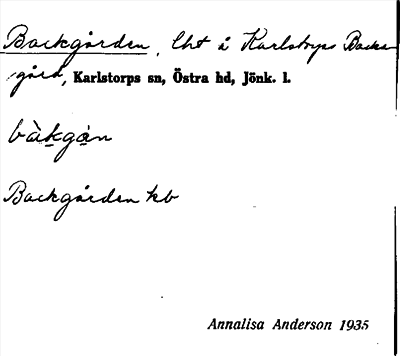 Backgården, lht å Karlstorps Backa
gård, Karlstorps sn, Östra hd, Jönk. l.
bàkgàn
Backgården kb
Annalisa Anderson 1935